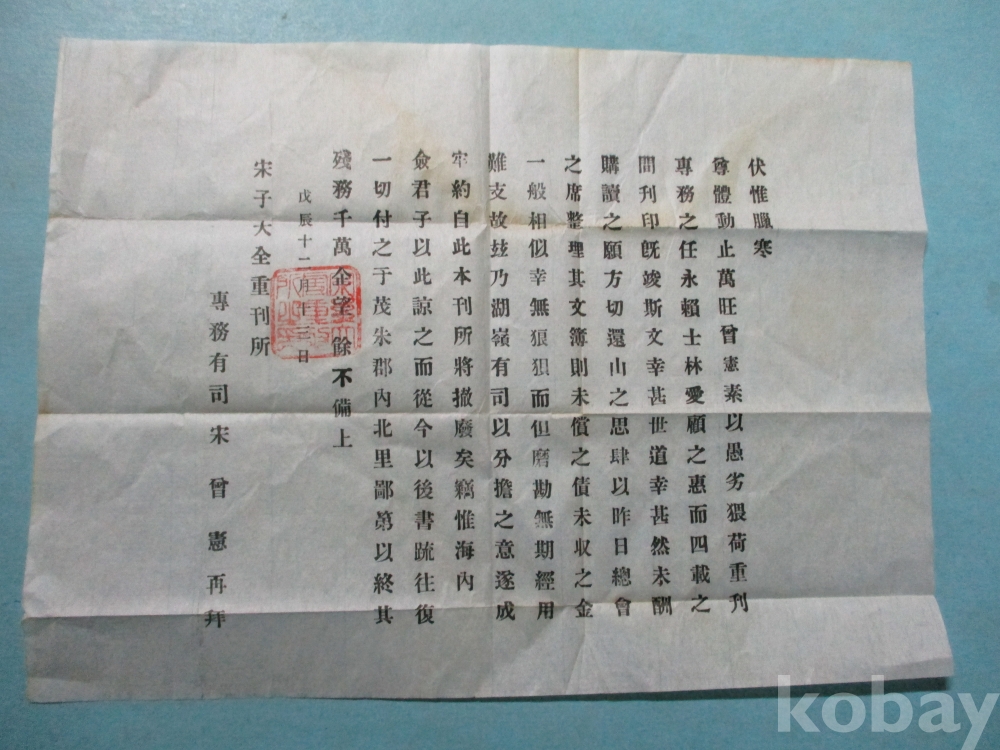 伏惟臘寒
尊體動止萬旺曾憲素以愚劣猥荷重刋
專務之任永賴士林愛顧之惠而四載之
間刋印旣竣斯文幸甚世道幸甚然未酬
購讀之願方切還山之思肆以昨日總會
之席整理其文簿則未償之債未収之金
一般相似幸無狼狽而但磨勘無期經用
難支故玆乃湖嶺有司以分擔之意遂成
牢約自此本刊所將撤廢矣竊惟海內
僉君子以此諒之而從今以後書䟽往復
一切付之于茂朱郡內北里鄙第以終其
殘務千萬企望餘不備上
戊辰十二月十三日
宋子大全重刊所
專務有司宋曾憲再拜
kobay